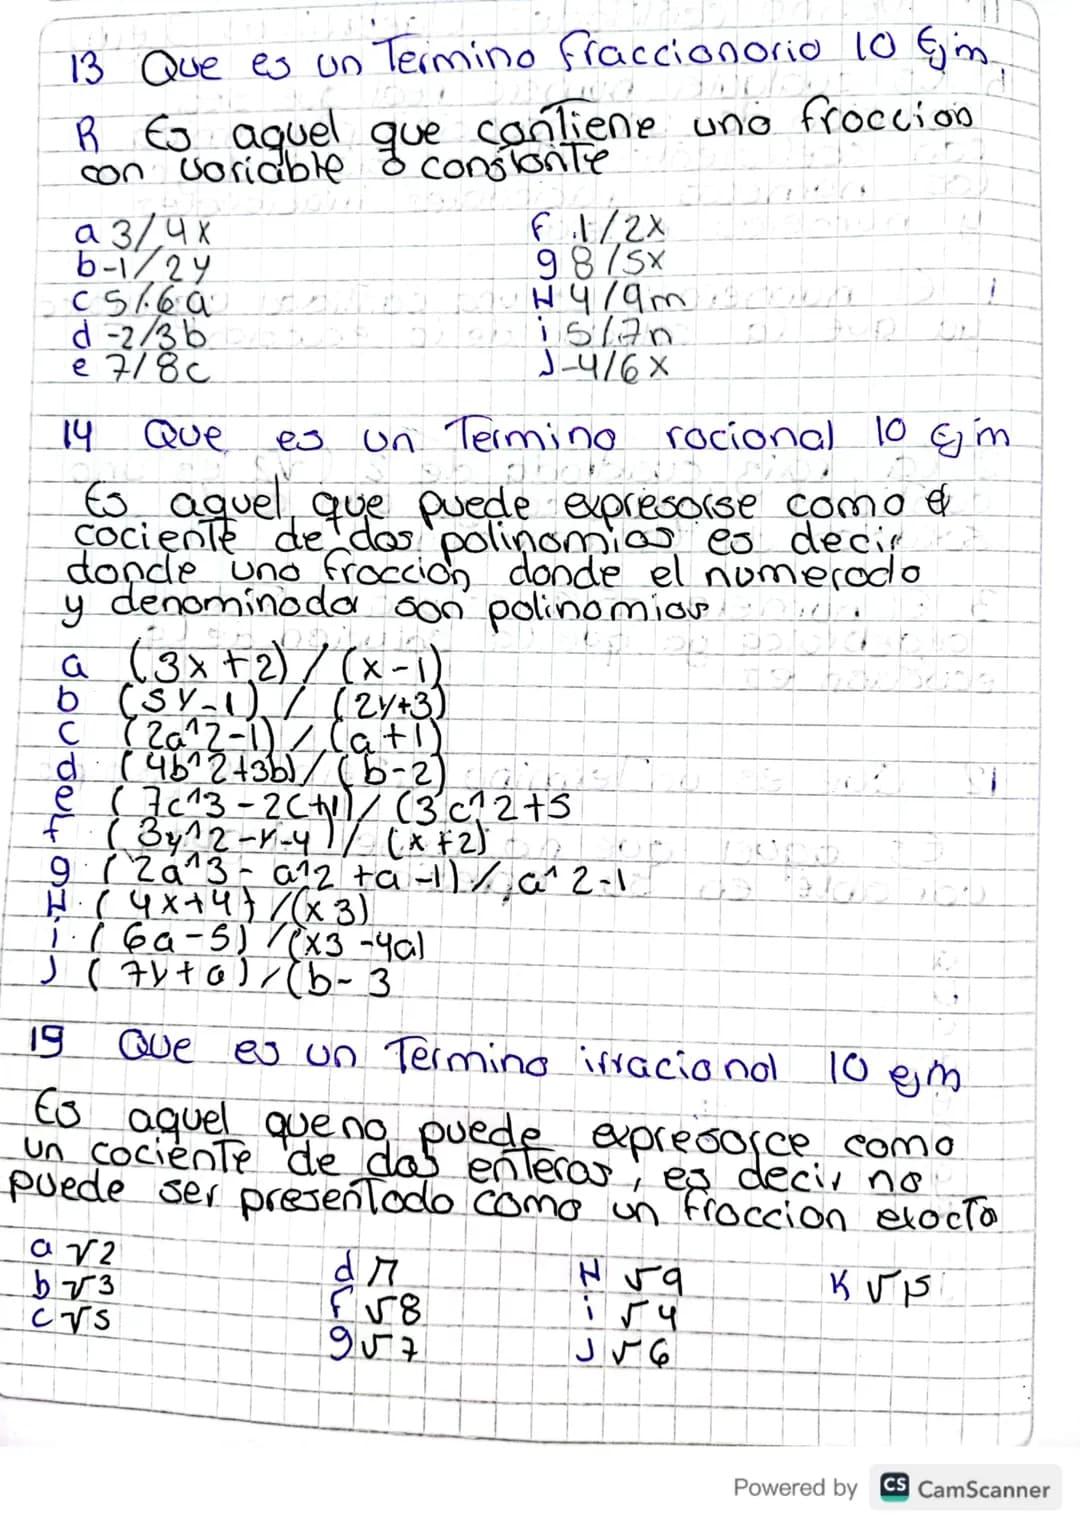 13 Que es un Termino fraccionario 10 Ejm
R Es aquel que contiene una fraccion
con variable o constante
a 3/4x
b -1/2y
c 5/6a
d -2/3b
e 7/8c
f 1/2x
g 8/5x
H 4/9m
i 5/7n
J -4/6x
14 Que es un Termino racional 10 Ejm
Es aquel que puede expresarse como el
cociente de dos polinomios es decir
donde una fraccion donde el numerado
y denominador son polinomios
a (3x+2)/(x-1)
b (5y-1)/(2y+3)
c (2a^2-1)/(a+1)
d (4b^2+3b)/(b-2)
e (7c^3-2c+1)/(3c^2+5
f (3y^2-y-4)/(x+2)
g (2a^3-a^2+a-1)/a^2-1
H (4x+4)/(x3)
i (6a-5)/(x3-4a)
J (7y+a)/(b-3
19 Que es un Termino irracional 10 ejm
Es aquel que no puede expresarce como
un cociente de dos enteros, es decir no
puede ser presentado como un fraccion exacta
a √2
b √3
c √5
d π
f √8
g √7
H √9
i √4
J √6
K √15
Powered by CS CamScanner